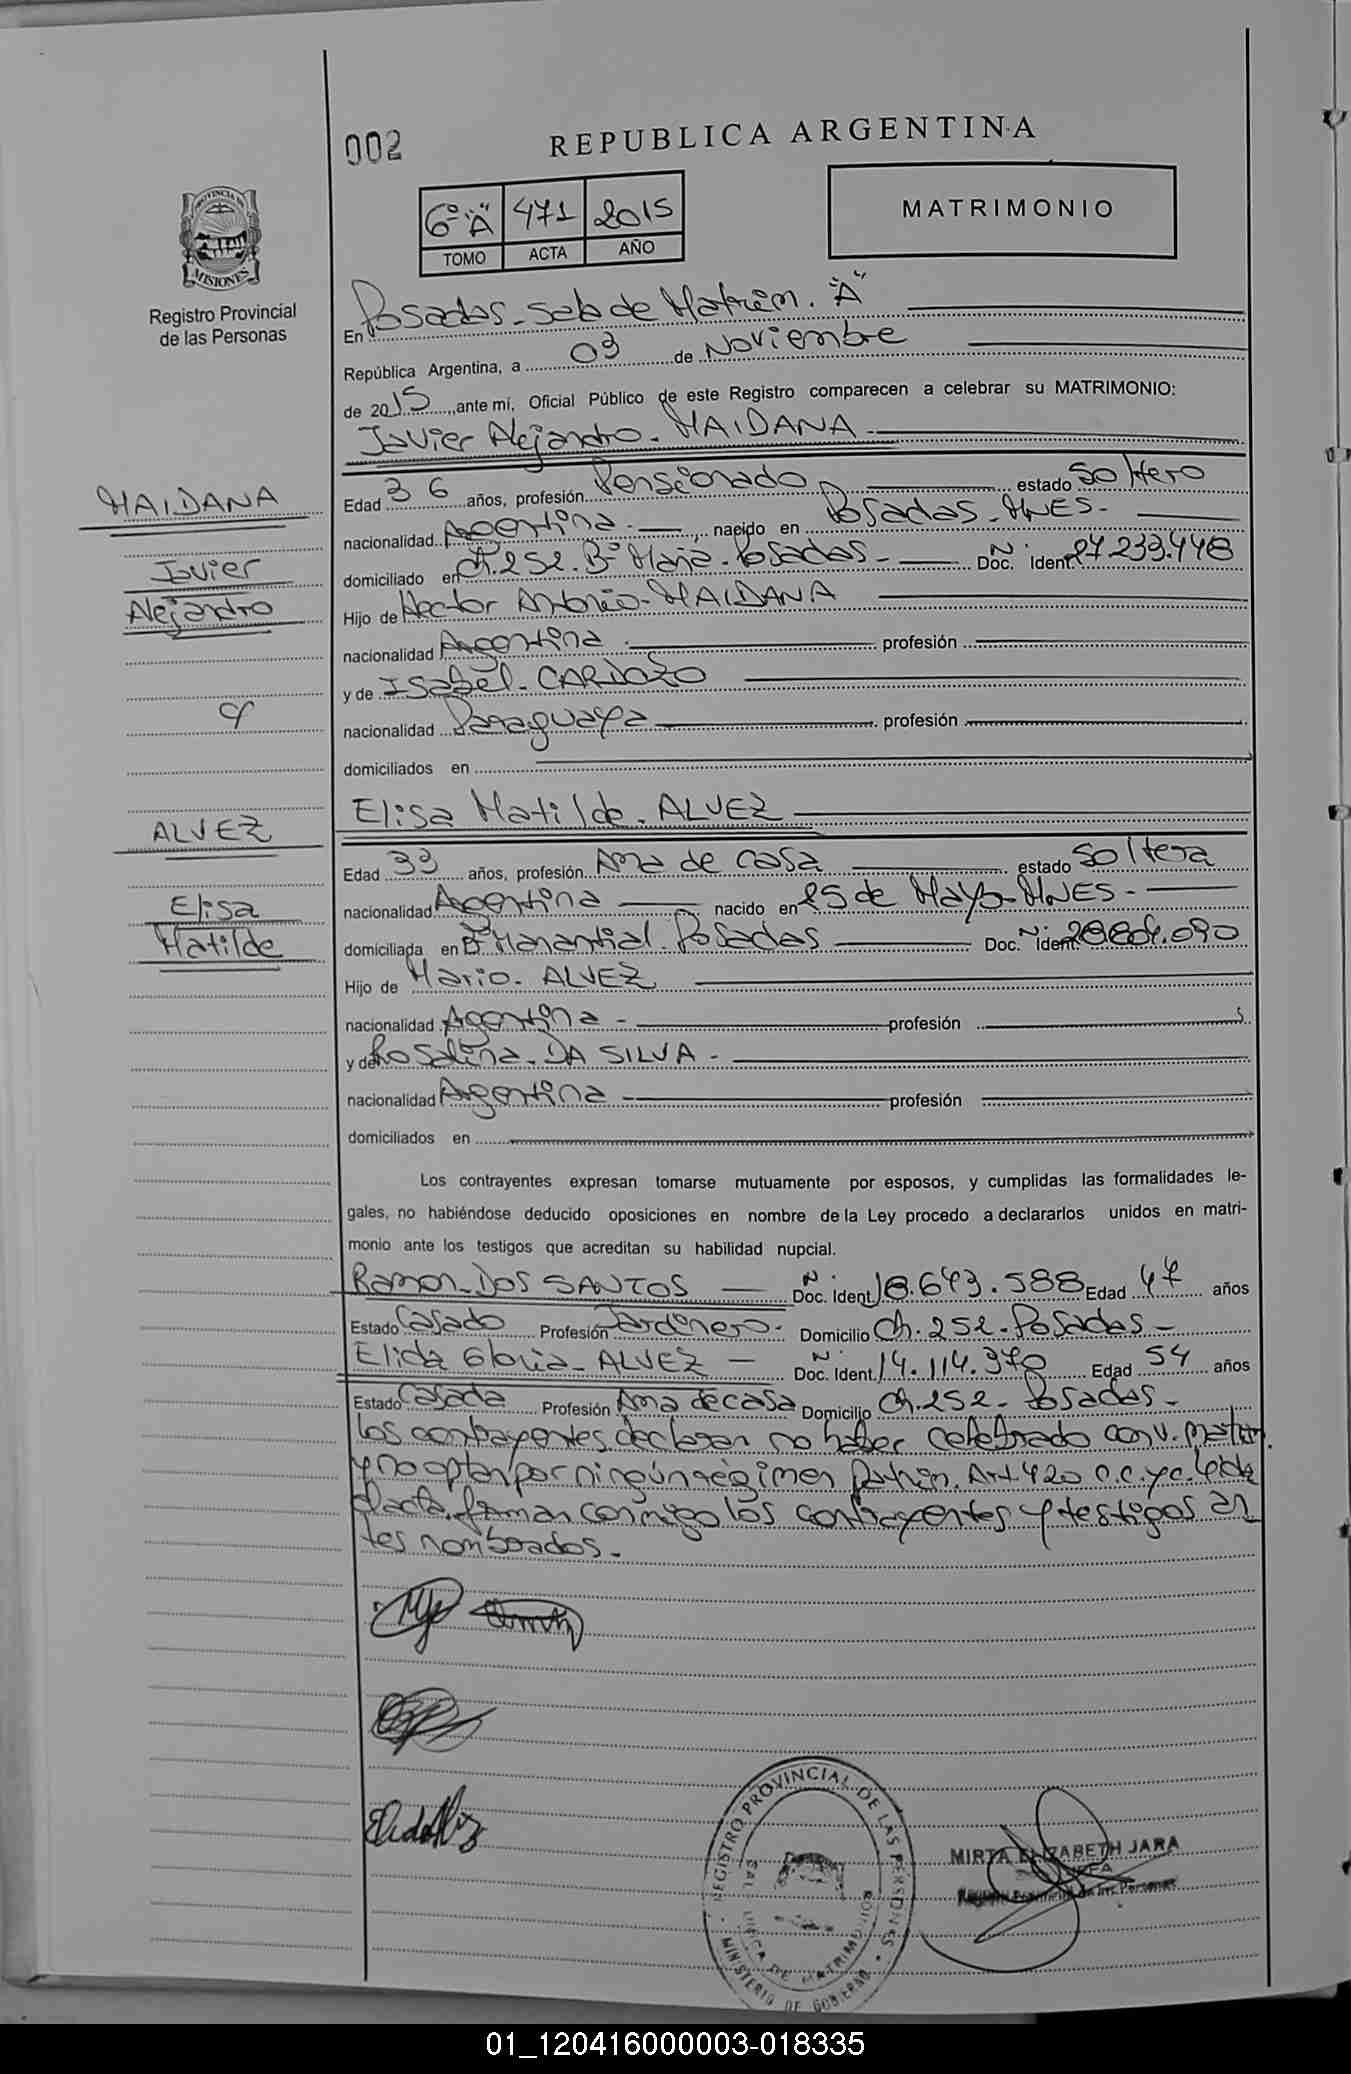 002
REPUBLICA ARGENTINA
6º "A" 471 2015
TOMO ACTA AÑO
MATRIMONIO
PROVINCIA DE
MISIONES
Registro Provincial
de las Personas
En Posadas - Sala de Matrim. "A"
República Argentina, a 03 de Noviembre
de 2015, ante mí, Oficial Público de este Registro comparecen a celebrar su MATRIMONIO:
Javier Alejandro - MAIDANA -
MAIDANA
Javier
Alejandro
Edad 36 años, profesión Pensionado estado Soltero
nacionalidad Argentina - nacido en Posadas - MNES -
domiciliado en Ch. 252. Bº Maria - Posadas - Doc. Nº Ident. 27.233.448
Hijo de Hector Antonio - MAIDANA
nacionalidad Argentina profesión
y de Isabel - CARDOZO
nacionalidad Paraguaya profesión
domiciliados en
Elisa Matilde - ALVEZ
c/
ALVEZ
Elisa
Matilde
Edad 33 años, profesión Ama de casa estado Soltera
nacionalidad Argentina nacido en 25 de Mayo - MNES -
domiciliada en Bº Manantial - Posadas Doc. Nº Ident.
Hijo de Mario - ALVEZ
nacionalidad Argentina - profesión
y de Rosalina - DA SILVA -
nacionalidad Argentina profesión
domiciliados en
Los contrayentes expresan tomarse mutuamente por esposos, y cumplidas las formalidades le-
gales, no habiéndose deducido oposiciones en nombre de la Ley procedo a declararlos unidos en matri-
monio ante los testigos que acreditan su habilidad nupcial.
Ramon - DOS SANTOS - Doc. Nº Ident. 18.643.588 Edad 47 años
Estado Casado Profesión Jardinero - Domicilio Ch. 252 - Posadas -
Elida Gloria - ALVEZ - Doc. Nº Ident. 14.114.370 Edad 54 años
Estado Casada Profesión Ama de casa Domicilio Ch. 252 - Posadas -
los contrayentes declaran no haber celebrado conv. matrim.
y no optan por ningún régimen patrim. Art. 420 C.C. y c. Leída
el acta, firman conmigo los contrayentes y testigos an
tes nombrados.
REGISTRO PROVINCIAL DE LAS PERSONAS
MINISTERIO DE GOBIERNO
MIRTA ELIZABETH JARA
JEFA
Registro Provincial de las Personas
01_120416000003-018335